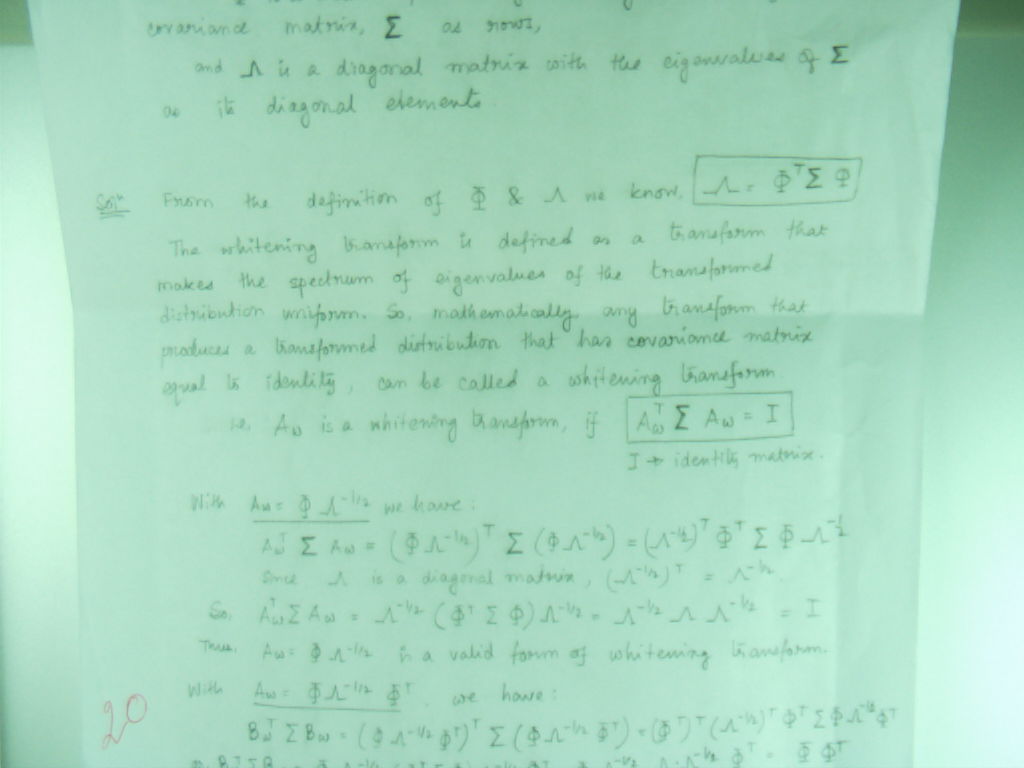 covariance matrix, Σ as rows,
and Λ is a diagonal matrix with the eigenvalues of Σ
as its diagonal elements.
Solⁿ From the definition of Φ & Λ we know, Λ = Φᵀ Σ Φ
The whitening transform is defined as a transform that
makes the spectrum of eigenvalues of the transformed
distribution uniform. So, mathematically, any transform that
produces a transformed distribution that has covariance matrix
equal to identity, can be called a whitening transform.
i.e, Aω is a whitening transform, if Aωᵀ Σ Aω = I
I → identity matrix.
With Aω = Φ Λ^-1/2 we have:
Aωᵀ Σ Aω = (Φ Λ^-1/2)ᵀ Σ (Φ Λ^-1/2) = (Λ^-1/2)ᵀ Φᵀ Σ Φ Λ^-1/2
Since Λ is a diagonal matrix, (Λ^-1/2)ᵀ = Λ^-1/2.
So, Aωᵀ Σ Aω = Λ^-1/2 (Φᵀ Σ Φ) Λ^-1/2 = Λ^-1/2 Λ Λ^-1/2 = I
Thus, Aω = Φ Λ^-1/2 is a valid form of whitening transform.
With Aω = Φ Λ^-1/2 Φᵀ we have:
20
Bωᵀ Σ Bω = (Φ Λ^-1/2 Φᵀ)ᵀ Σ (Φ Λ^-1/2 Φᵀ) = (Φᵀ)ᵀ (Λ^-1/2)ᵀ Φᵀ Σ Φ Λ^-1/2 Φᵀ